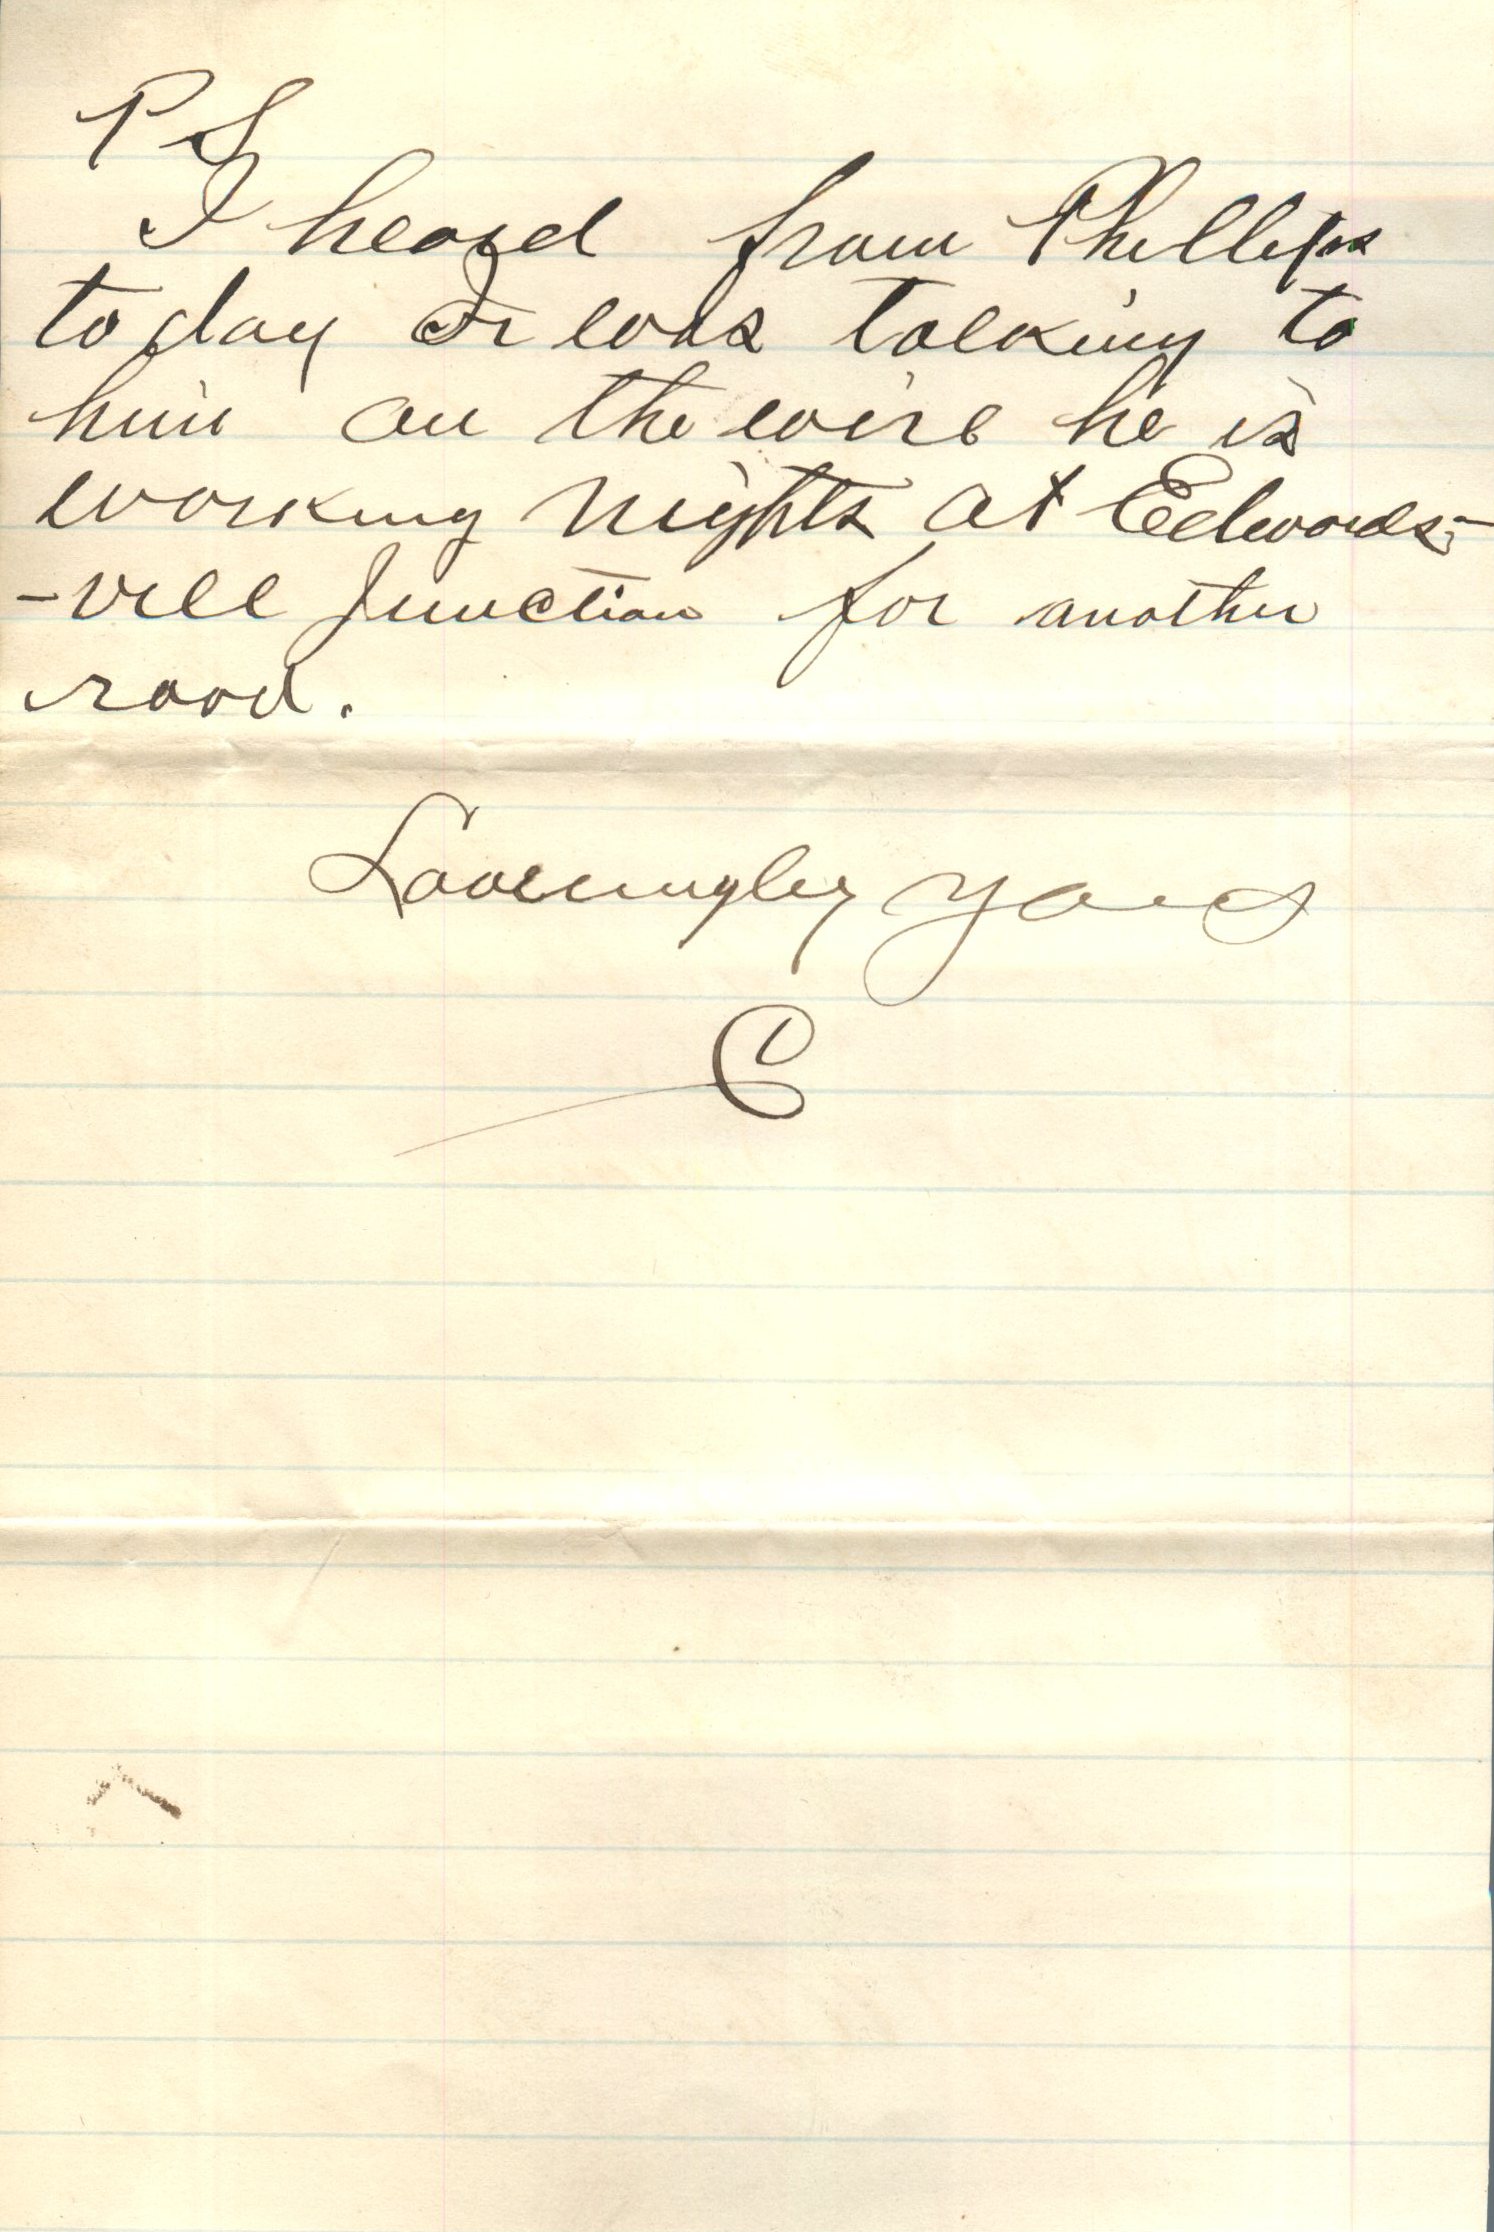 P S
I heard from Phillips
to day I was talking to
him on the wire he is
working nights at Edwards-
-vill Junction for another
road.
Loveingly yours
C